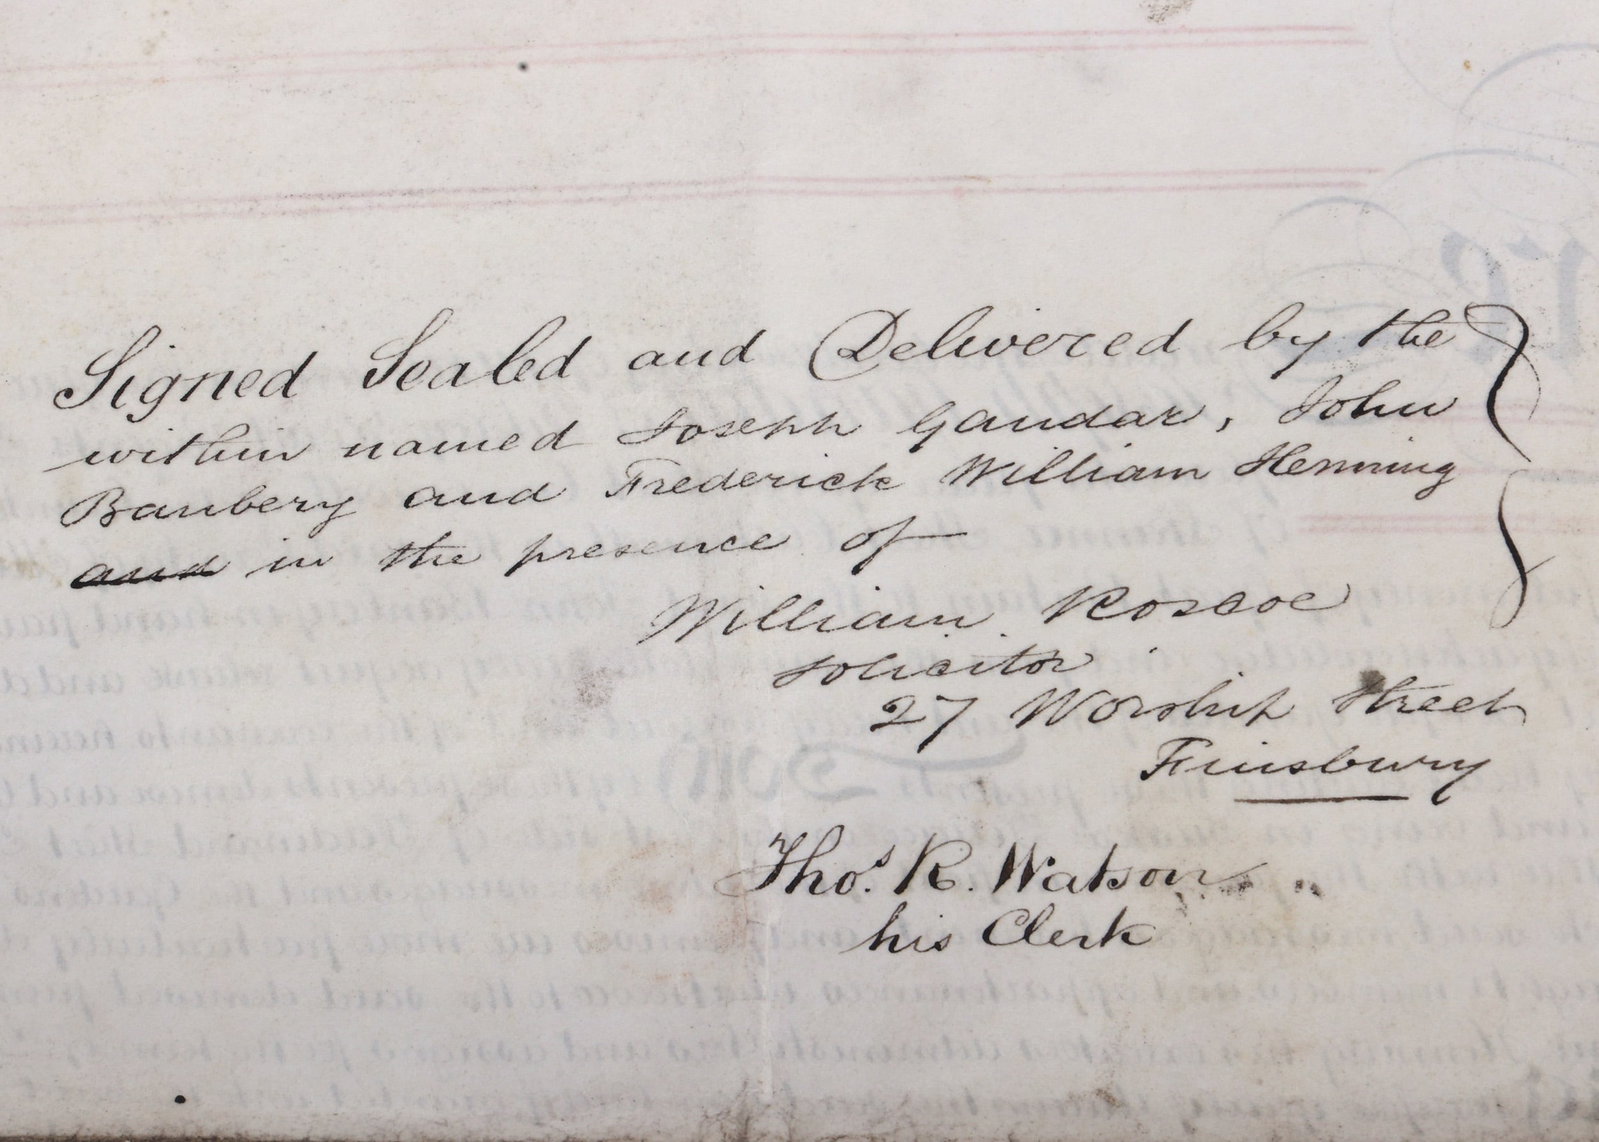 Signed Sealed and Delivered by the
within named Joseph Gaudar, John
Banbery and Frederick William Henning
and in the presence of
William Roscoe
Solicitor
27 Worship Street
Finsbury
Thos. R. Watson
his Clerk